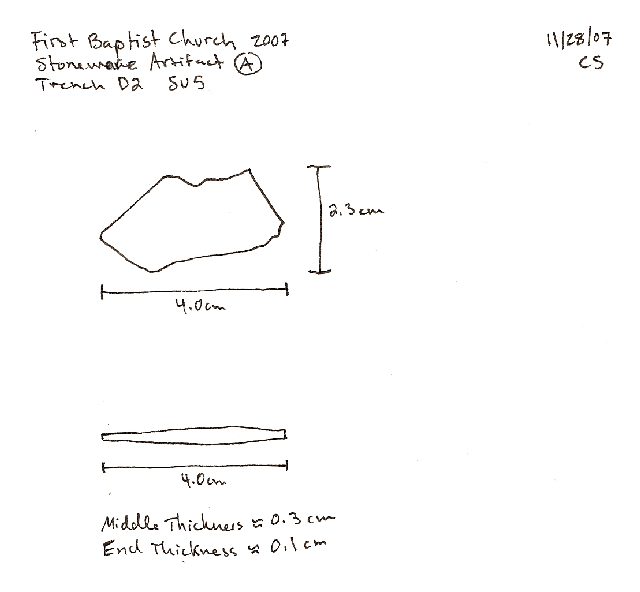 First Baptist Church 2007
11/28/07
Stoneware Artifact A
CS
Trench D2 SU5
2.3cm
4.0cm
4.0cm
Middle Thickness ≈ 0.3 cm
End Thickness ≈ 0.1 cm